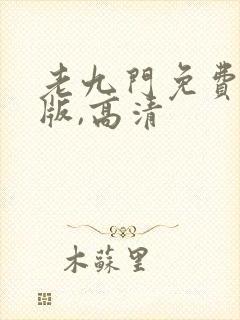 老九門免費
版,高清
木蘇里